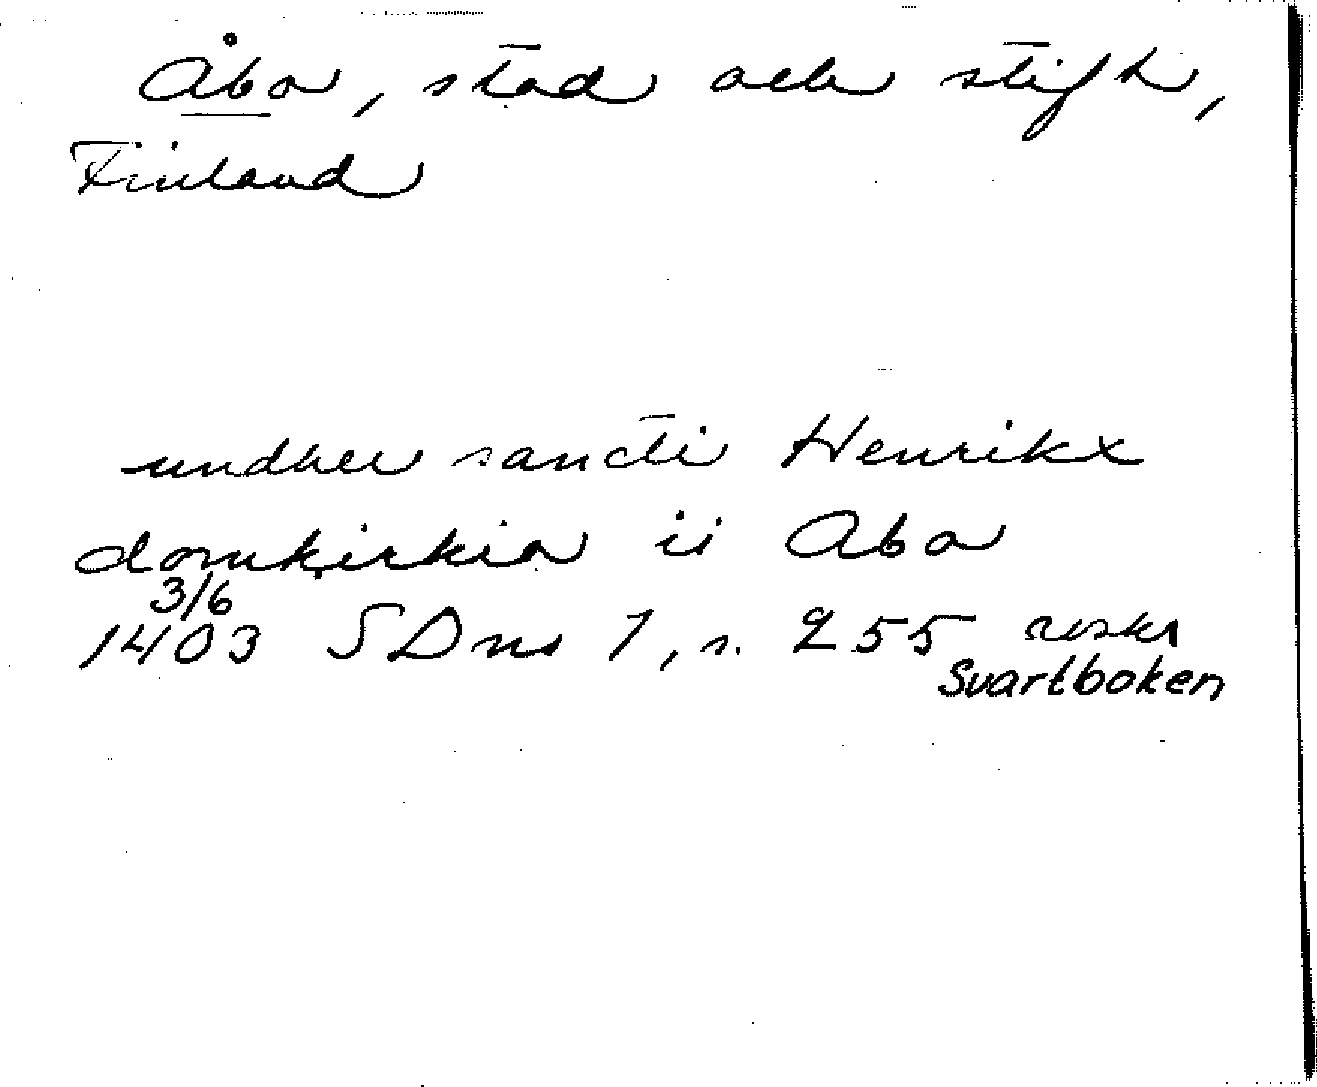 Åbo, stad och stift,
Finland
undher sancti Henrikx
domkirkia ii Abo
3/6
1403 SDns 1, s. 255
Svartboken